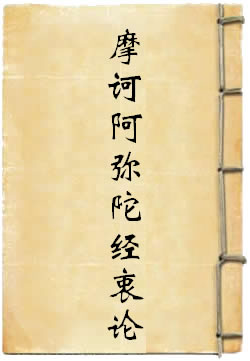 摩诃阿弥陀经衷论